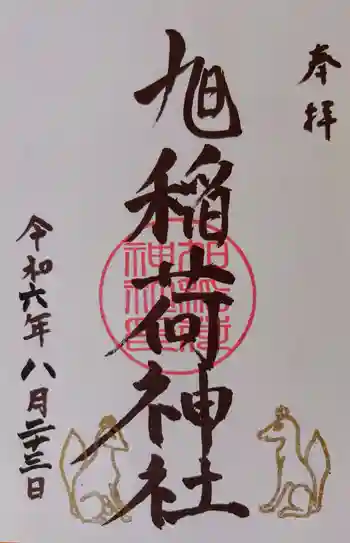 奉拝
旭稲荷神社
令和六年八月二十三日